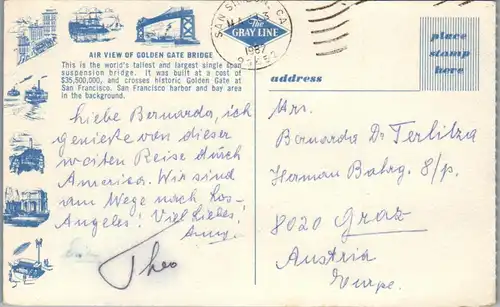 AIR VIEW OF GOLDEN GATE BRIDGE
This is the world's tallest and largest single span
suspension bridge. It was built at a cost of
$35,500,000, and crosses historic Golden Gate at
San Francisco. San Francisco harbor and bay area
in the background.
The
GRAY LINE
SAN CA
1987
place
stamp
here
address
Liebe Bernarda, ich
genieße von dieser
weiten Reise durch
Amerika. Wir sind
am Wege nach Los-
Angeles! Viel Liebes!
Theo
Mrs.
Bernarda Dr Terlitza
Herman Bahrg. 8/p.
8020 Graz
Austria
Europe.